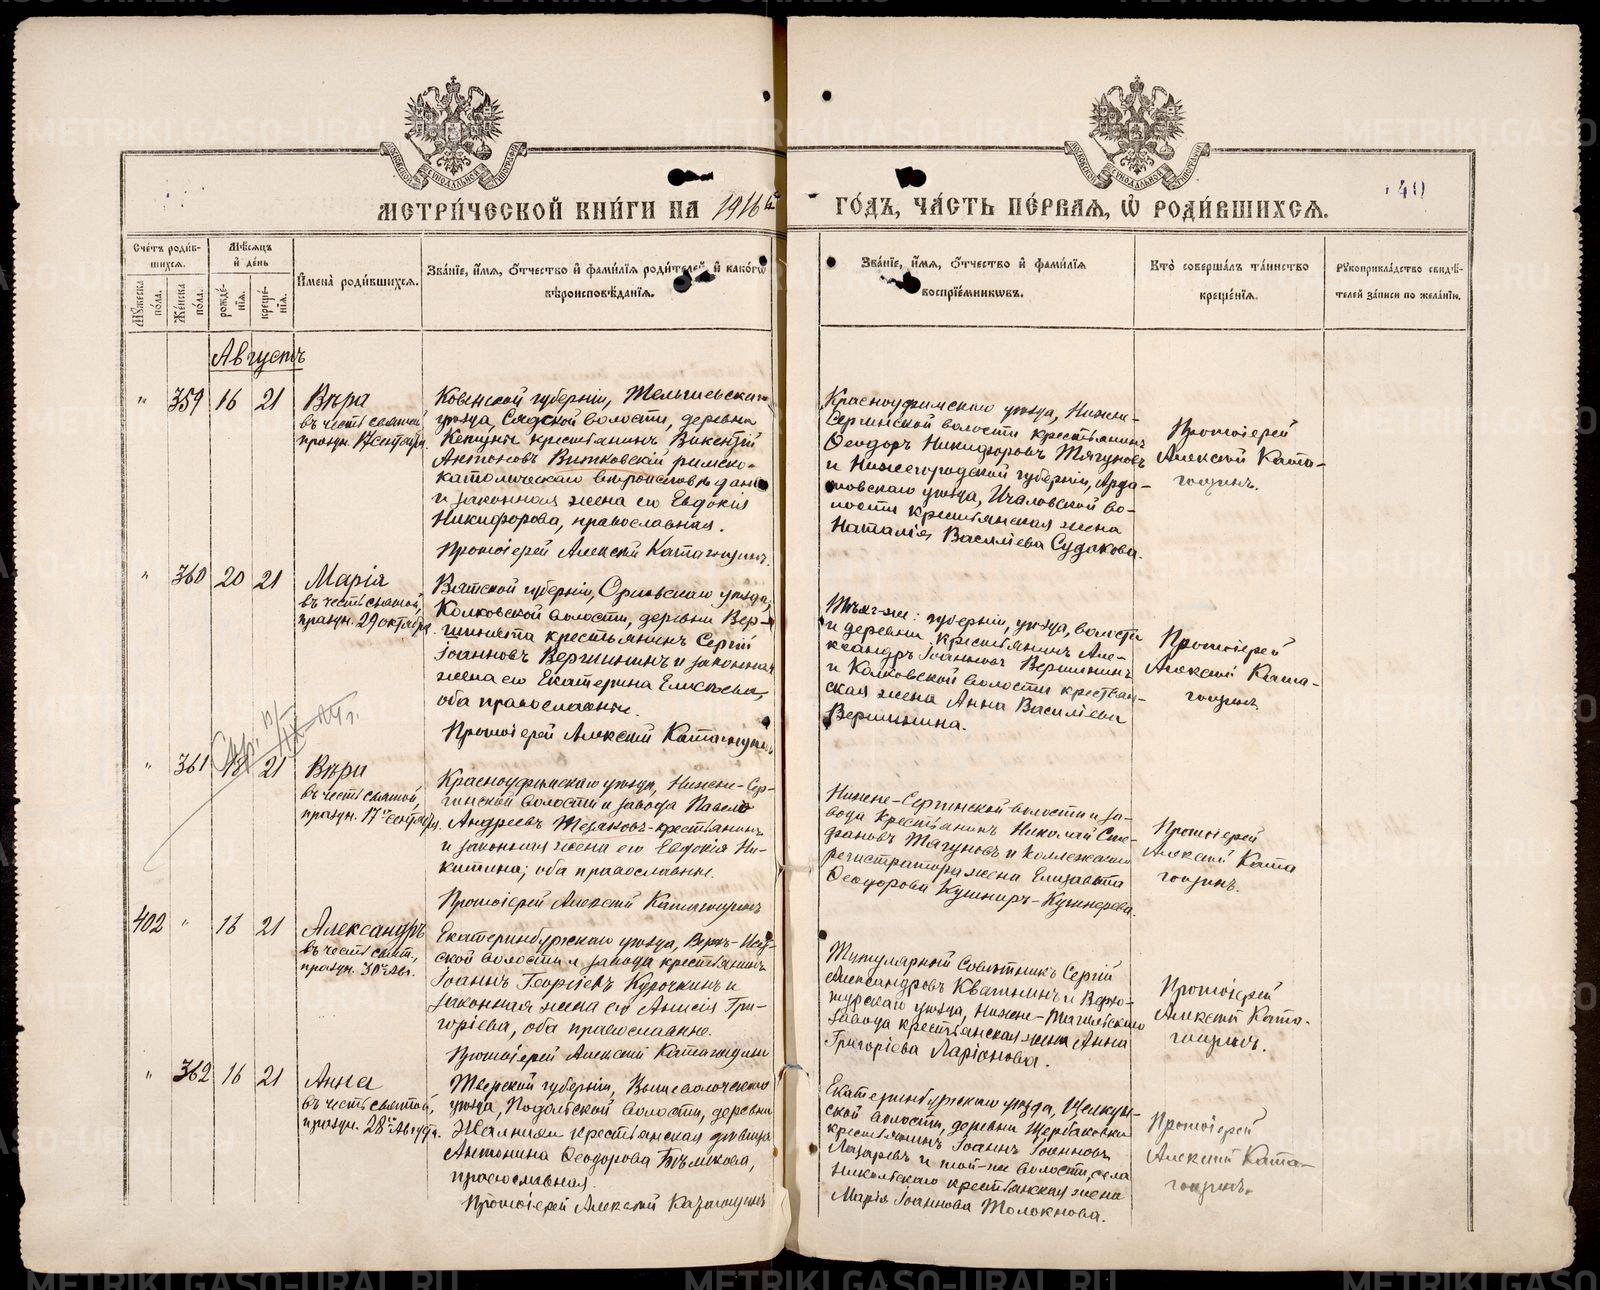 METRIKI.GASO-URAL.RU
40
МЕТРИ́ЧЕСКОЙ КНИ́ГИ НА 1916 й ГО́ДЪ, ЧА́СТЬ ПЕ́РВАЯ, Ѡ҆ РОДИ́ВШИХСЯ.
Сче́тъ роди́в-
шихся.
Мѣ́сяцъ
и҆ де́нь
Му́жеска по́ла.
Же́нска по́ла.
рожде́-нїя.
креще́-нїя.
И҆мена̀ роди́вшихся.
Зва́нїе, и҆́мя, ѻ҆́тчество и҆ фами́лїя роди́телей, и҆ како́гѡ
вѣроисповѣ́данїя.
Зва́нїе, и҆́мя, ѻ҆́тчество и҆ фами́лїя
воспрїе́мникѡвъ.
Кто̀ соверша́лъ та́инство
креще́нїя.
Рꙋкоприкла́дство свидѣ́-
телей за́писи по жела́нїю.
Августъ
" 359 16 21 Вѣра
въ честь святой,
праздн. 17 сентября.
Ковенской губерніи, Тельшевскаго
уѣзда, Сядской волости, деревни
Кетунъ крестьянинъ Викентій
Антоновъ Витковскій римско-
католическаго вѣроисповѣданія
и законная жена его Евдокія
Никифорова, православная.
Протоіерей Алексій Катагощинъ.
Красноуфимскаго уѣзда, Нижне-
Сергинской волости крестьянинъ
Ѳеодоръ Никифоровъ Тягуновъ
и Нижегородской губерніи, Арда-
товскаго уѣзда, Ичаловской во-
лости крестьянская жена
Наталія Василіева Судакова.
Протоіерей
Алексій Ката-
гощинъ.
" 360 20 21 Марія
въ честь святой,
праздн. 29 октября
Вятской губерніи, Орловскаго уѣзда,
Колковской волости, деревни Вер-
шинята крестьянинъ Сергій
Іоанновъ Вершининъ и законная
жена его Екатерина Елисѣева,
оба православные.
Протоіерей Алексій Катагощинъ
Тѣхъ-же: губерніи, уѣзда, волости
и деревни крестьянинъ Але-
ксандръ Іоанновъ Вершининъ
и Колковской волости крестьян-
ская жена Анна Василіева
Вершинина.
Протоіерей
Алексій Ката-
гощинъ.
" 361 18 21 Вѣра
въ честь святой,
праздн. 17го сентября.
Красноуфимскаго уѣзда, Нижне-Сер-
гинской волости и завода Павелъ
Андреевъ Тезяковъ-крестьянинъ
и законная жена его Евдокія Ни-
китина; оба православные.
Протоіерей Алексій Катагощинъ
Нижне-Сергинской волости и за-
вода крестьянинъ Николай Сте-
фановъ Тягуновъ и коллежскаго
регистратора жена Елизавета
Ѳеодорова Кушниръ-Кушнерева.
Протоіерей
Алексій Ката
гощинъ.
402 " 16 21 Александръ
въ честь свят.,
праздн. 30го Авг.
Екатеринбургскаго уѣзда, Верхъ-Исет-
ской волости и завода крестьянинъ
Іоаннъ Георгіевъ Курочкинъ и
законная жена его Анисія Гри-
горіева, оба православные.
Протоіерей Алексій Катагощинъ
Титулярный Совѣтникъ Сергій
Александровъ Квашнинъ и Верхо-
турскаго уѣзда, Нижне-Тагильскаго
завода крестьянская жена Анна
Григоріева Ларіонова.
Протоіерей
Алексій Ката-
гощинъ.
" 362 16 21 Анна
въ честь святой,
праздн. 28го Августа.
Тверской губерніи, Вышневолоцкаго
уѣзда, Подольской волости, деревни
крестьянская дѣвица
Антонина Ѳеодорова Бѣликова,
православная.
Протоіерей Алексій Катагощинъ
Екатеринбургскаго уѣзда, Щелкун-
ской волости, деревни Щербаковки
крестьянинъ Іоаннъ Іоанновъ
Лазаревъ и той-же волости, села
Никольскаго крестьянская жена
Марія Іоаннова Толокнова.
Протоіерей
Алексій Ката-
гощинъ.